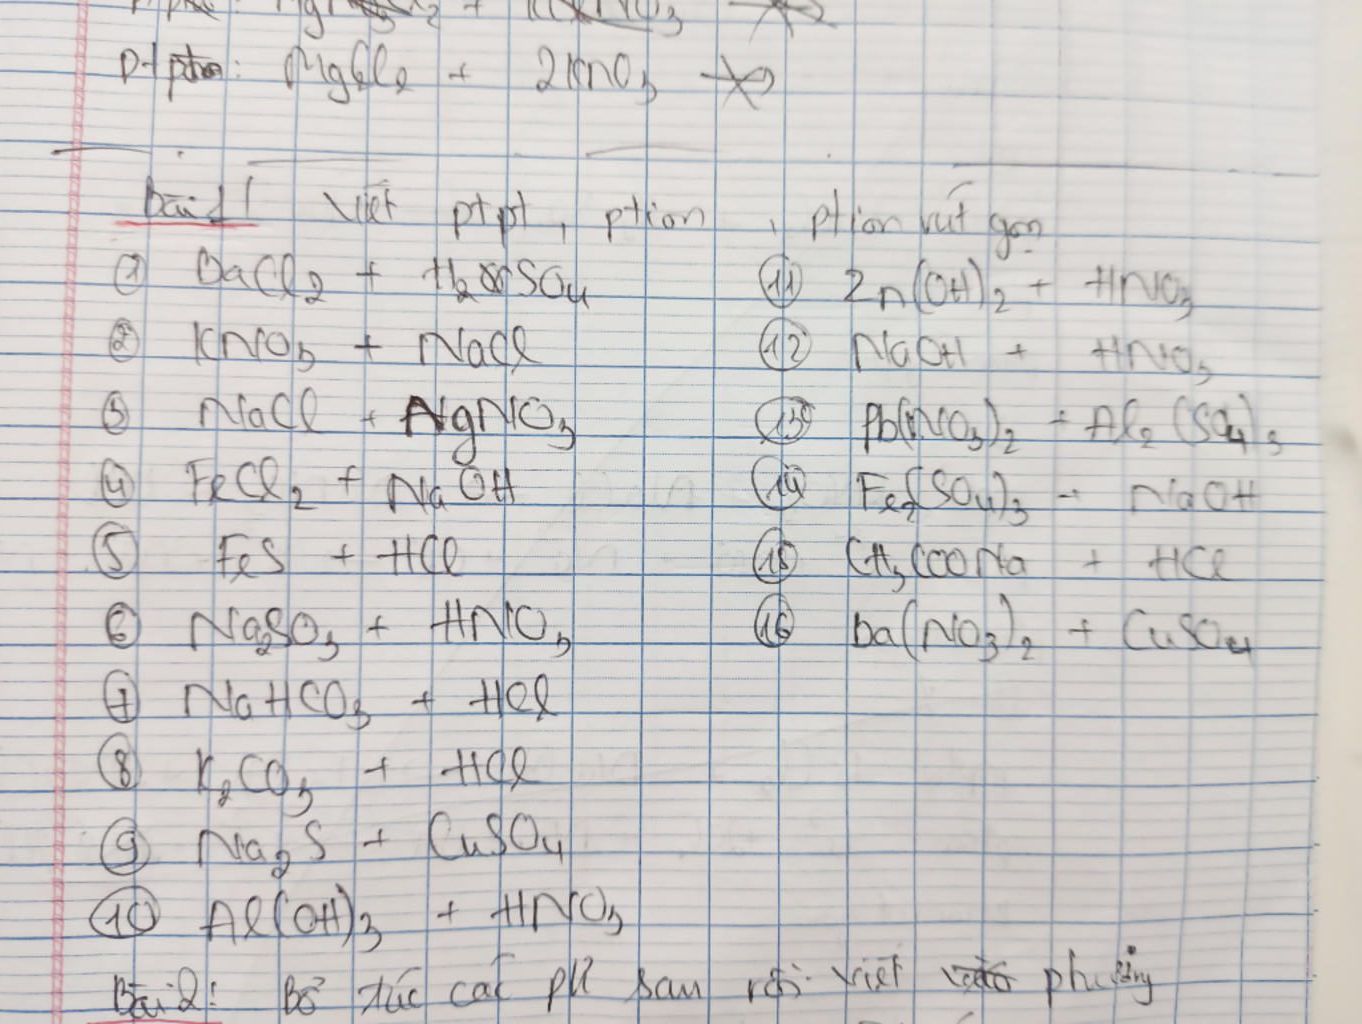 ptpt: MgCl2 + 2KNO3
Bài 1! Viết ptpt, ption, ption rút gọn
① BaCl2 + H2SO4
② KNO3 + NaCl
③ NaCl + AgNO3
④ FeCl2 + NaOH
⑤ FeS + HCl
⑥ Na2SO3 + HNO3
⑦ NaHCO3 + HCl
⑧ K2CO3 + HCl
⑨ Na2S + CuSO4
⑩ Al(OH)3 + HNO3
⑪ Zn(OH)2 + HNO3
⑫ NaOH + HNO3
⑬ Pb(NO3)2 + Al2(SO4)3
⑭ Fe2(SO4)3 + NaOH
⑮ CH3COONa + HCl
⑯ Ba(NO3)2 + CuSO4
Bài 2: Bổ túc các pư sau rồi viết phương